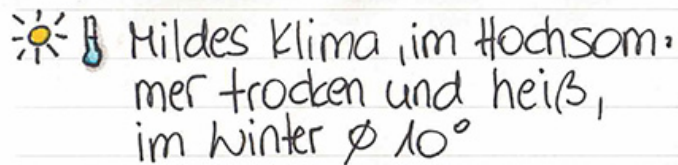 Mildes Klima, im Hochsom-
mer trocken und heiß,
im Winter ∅ 10°